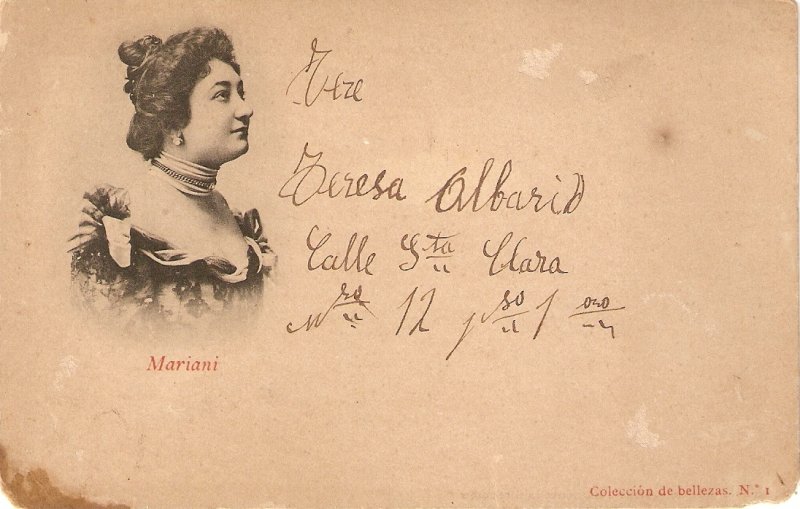 Tere
Teresa Albarid
Calle Sta Clara
Nro 12 pso 1 oro
Mariani
Colección de bellezas. N.º 1